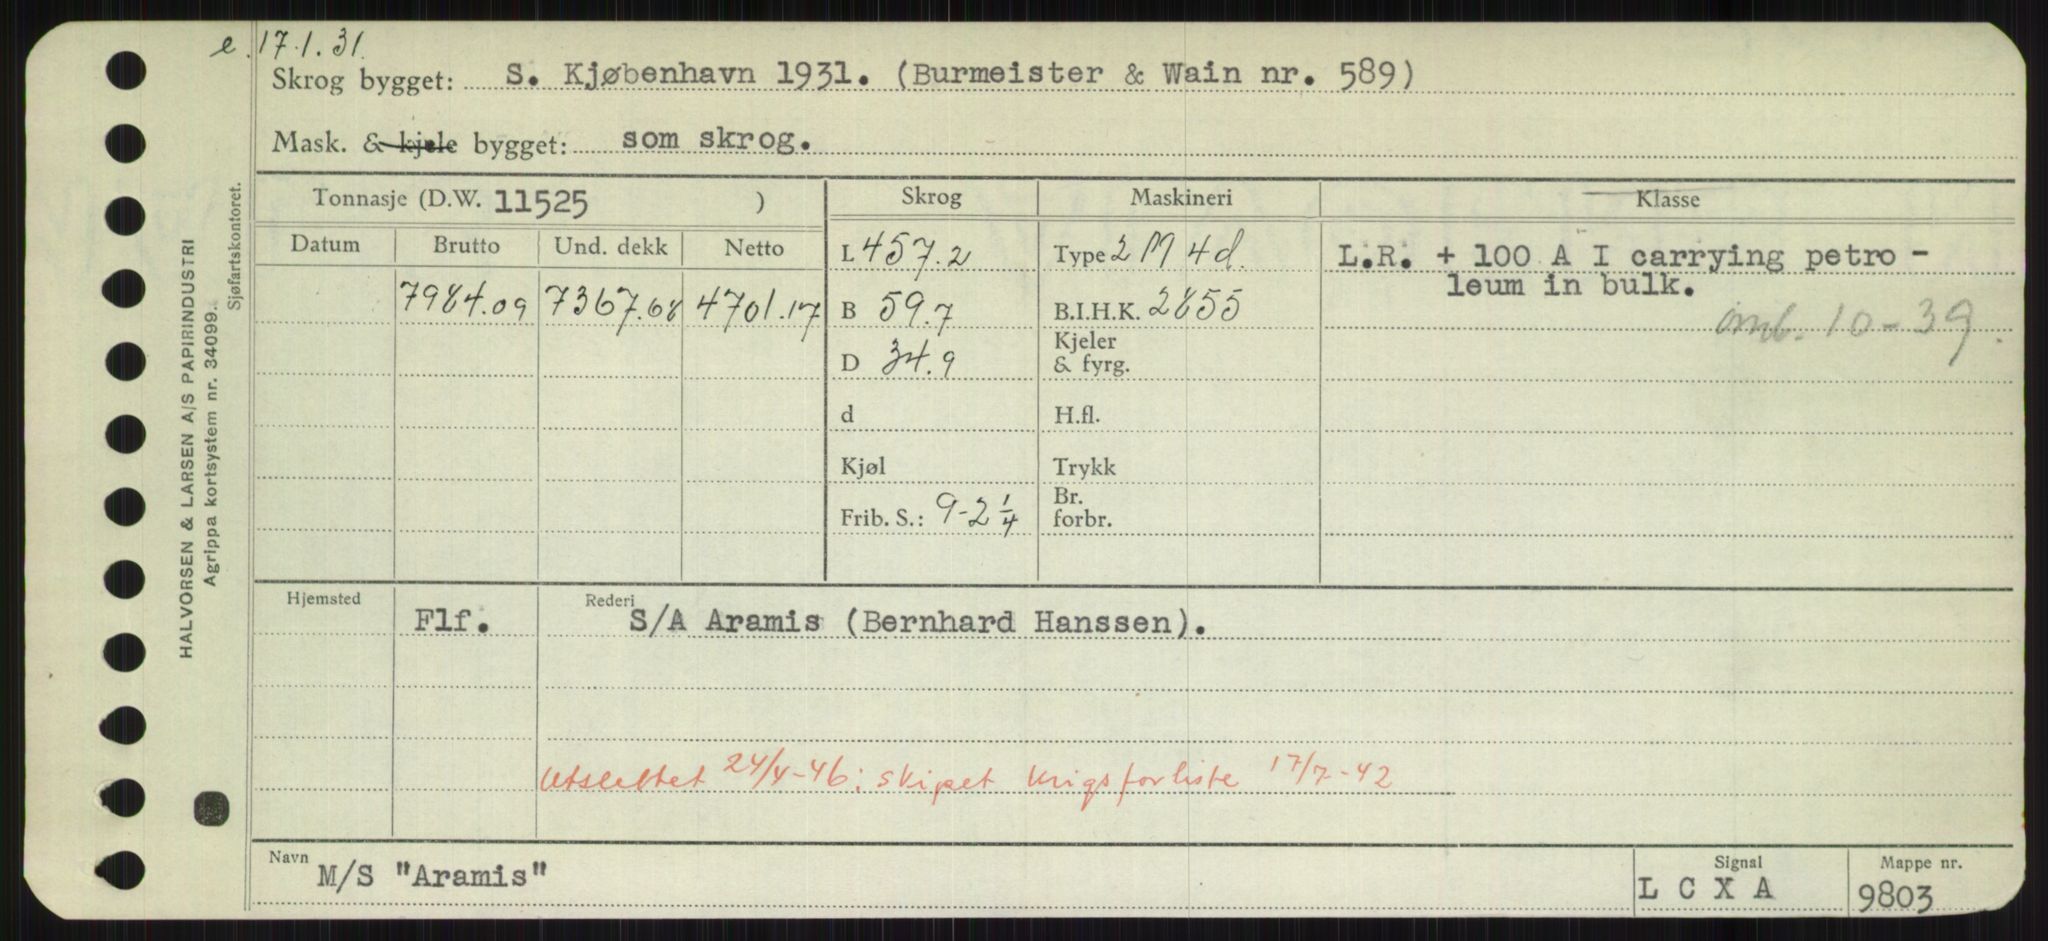 e. 17.1.31.
Skrog bygget: S. Kjøbenhavn 1931. (Burmeister & Wain nr. 589)
Mask. & kjele bygget: som skrog.
Tonnasje (D.W. 11525 )
Skrog
Maskineri
Klasse
Datum
Brutto
Und. dekk
Netto
7984.09
7367.68
4701.17
L 457.2
B 59.7
D 34.9
d
Kjøl
Frib. S.: 9-2 1/4
Type 2 M 4d.
B.I.H.K. 2855
Kjeler
& fyrg.
H.fl.
Trykk
Br.
forbr.
L.R. + 100 A I carrying petro -
leum in bulk.
10-39.
Hjemsted
Flf.
Rederi
S/A Aramis (Bernhard Hanssen).
Utslettet 24/4-46: skipet krigsforliste 17/7-42
Navn
M/S "Aramis"
Signal
L C X A
Mappe nr.
9803
HALVORSEN & LARSEN A/S PAPIRINDUSTRI
Agrippa kortsystem nr. 34099.
Sjøfartskontoret.